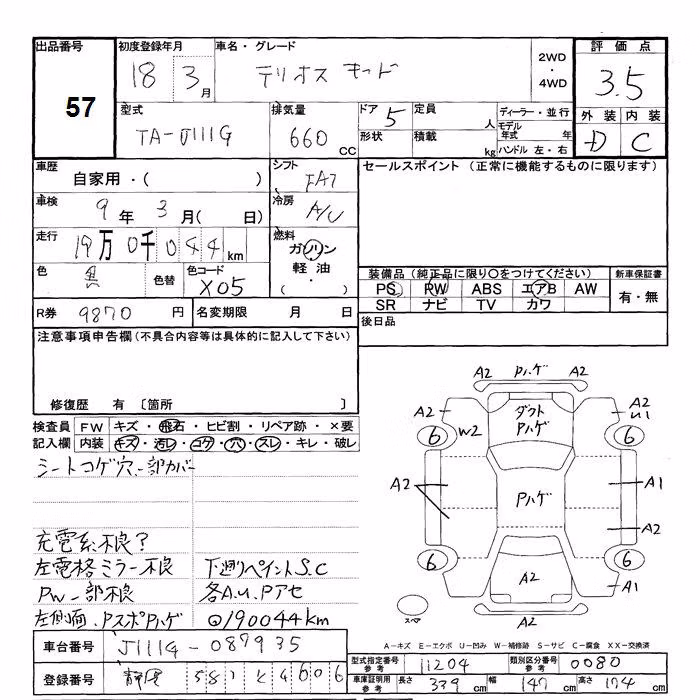 出品番号
57
初度登録年月
18 3 月
車名・グレード
テリオス キッド
2WD
・
4WD
評価点
3.5
型式
TA-J111G
排気量
660 CC
ドア 5
形状
定員 人
積載 kg
ディーラー・並行
モデル年式 年
ハンドル 左・右
外装 内装
D C
車歴
自家用・( )
シフト
FAT
セールスポイント (正常に機能するものに限ります)
車検
9 年 3 月( 日)
冷房
A/C
走行
19万0千044km
燃料
ガソリン
軽油
( ・ )
色
黒
色替
色コード
X05
装備品(純正品に限り〇をつけてください)
新車保証書
PS PW ABS エアB AW
有・無
SR ナビ TV カワ
R券 9870 円
名変期限 月 日
後日品
注意事項申告欄(不具合内容等は具体的に記入して下さい)
修復歴 有 〔箇所 〕
検査員
記入欄
FW キズ・飛石・ヒビ割・リペア跡・×要
内装 キズ・汚レ・コゲ・穴・スレ・キレ・破レ
シートコゲ穴、一部カバー
充電系不良?
左電格ミラー不良
下廻りペイントS.C
PW一部不良
各A.U.Pアセ
左側面.Pスポアハゲ
⊙190044km
A2 Pハゲ A2
A2
ダクト
Pハゲ
A2
U1
6 W2 6
A2
Pハゲ
A1
A2
6 6
A2
A1
スペア
A2
A-キズ E-エクボ U-凹み W-補修跡 S-サビ C-腐食 XX-交換済
車台番号 J111G-087935
登録番号 静岡
型式指定番号
参考
11204
類別区分番号
参考
0080
車庫証明用
参考
長さ 339 cm
幅 147 cm
高さ 174 cm